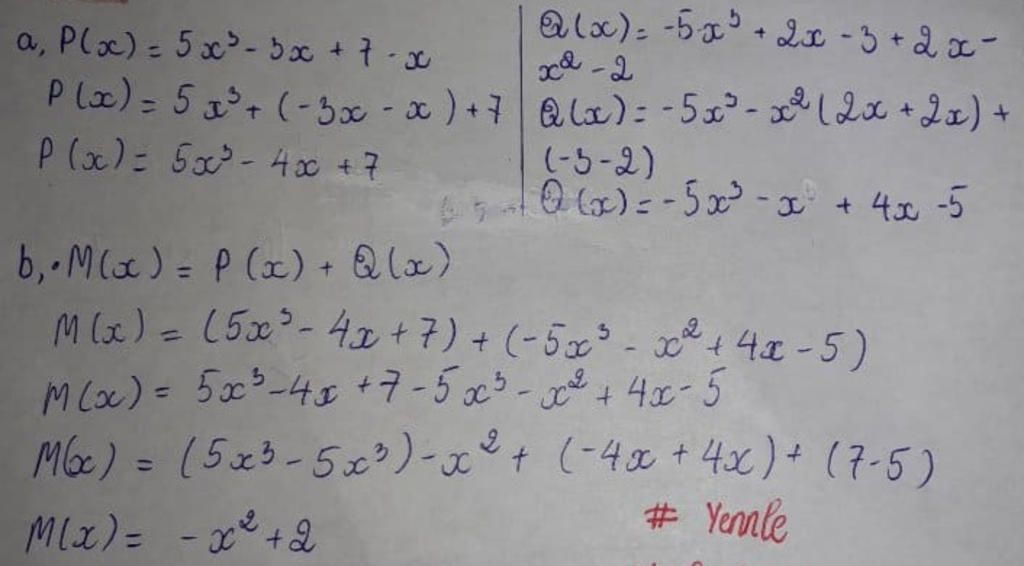 a, P(x) = 5x³ - 3x + 7 - x
P(x) = 5x³ + (-3x - x) + 7
P(x) = 5x³ - 4x + 7
Q(x) = -5x³ + 2x - 3 + 2x -
x² - 2
Q(x) = -5x³ - x² (2x + 2x) +
(-3 - 2)
Q(x) = -5x³ - x + 4x - 5
b, • M(x) = P(x) + Q(x)
M(x) = (5x³ - 4x + 7) + (-5x³ - x² + 4x - 5)
M(x) = 5x³ - 4x + 7 - 5x³ - x² + 4x - 5
M(x) = (5x³ - 5x³) - x² + (-4x + 4x) + (7 - 5)
M(x) = -x² + 2
# Yennle